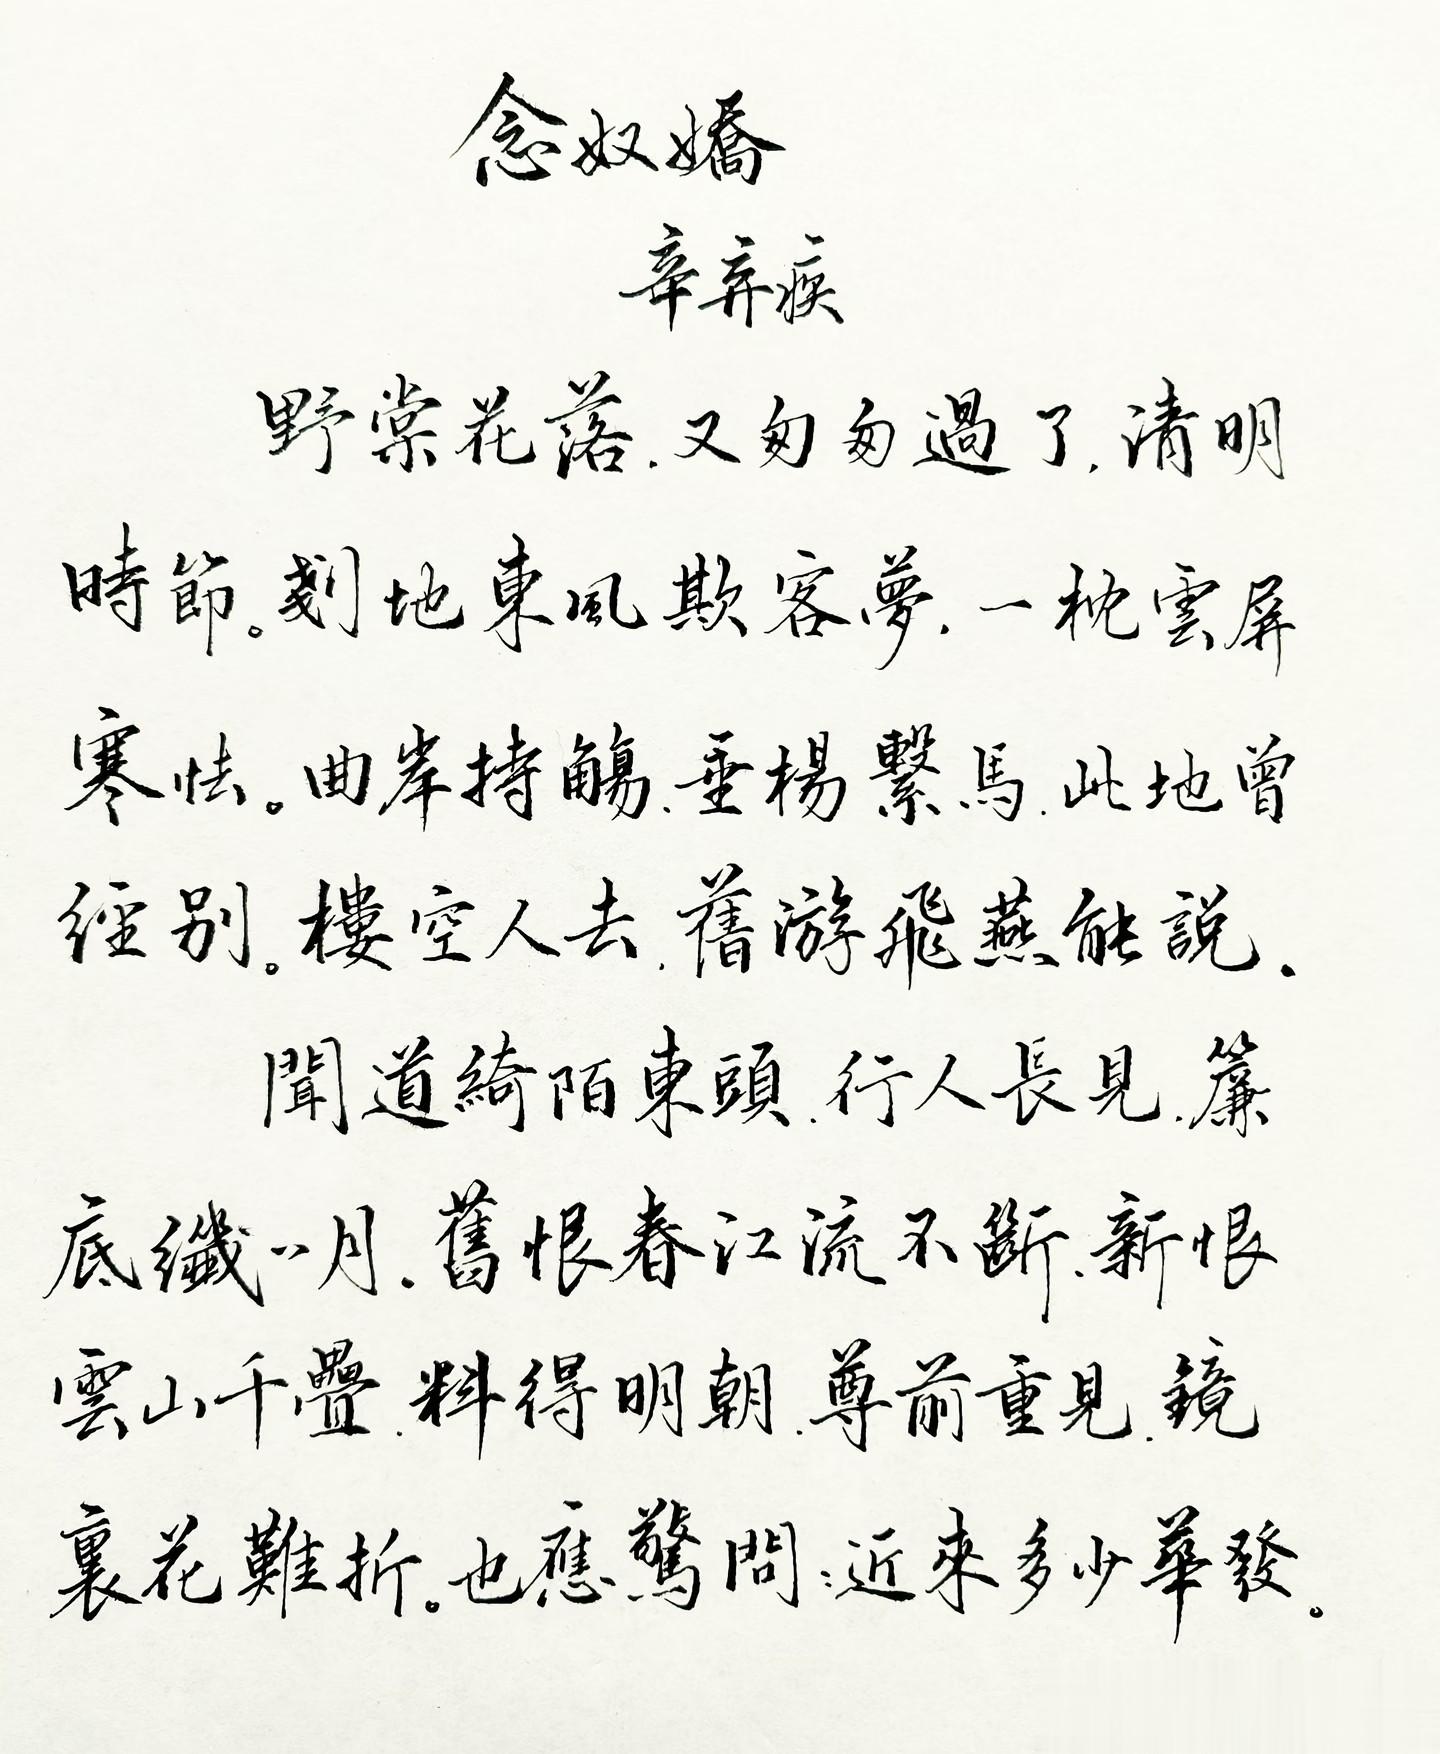 念奴嬌
辛弃疾
野棠花落，又匆匆過了，清明
時節。剗地東風欺客夢，一枕雲屏
寒怯。曲岸持觴，垂楊繫馬，此地曾
經别。樓空人去，舊游飛燕能説。
聞道綺陌東頭，行人長見，簾
底纖纖月。舊恨春江流不斷，新恨
雲山千疊，料得明朝，尊前重見，鏡
裏花難折。也應驚問：近來多少華發。